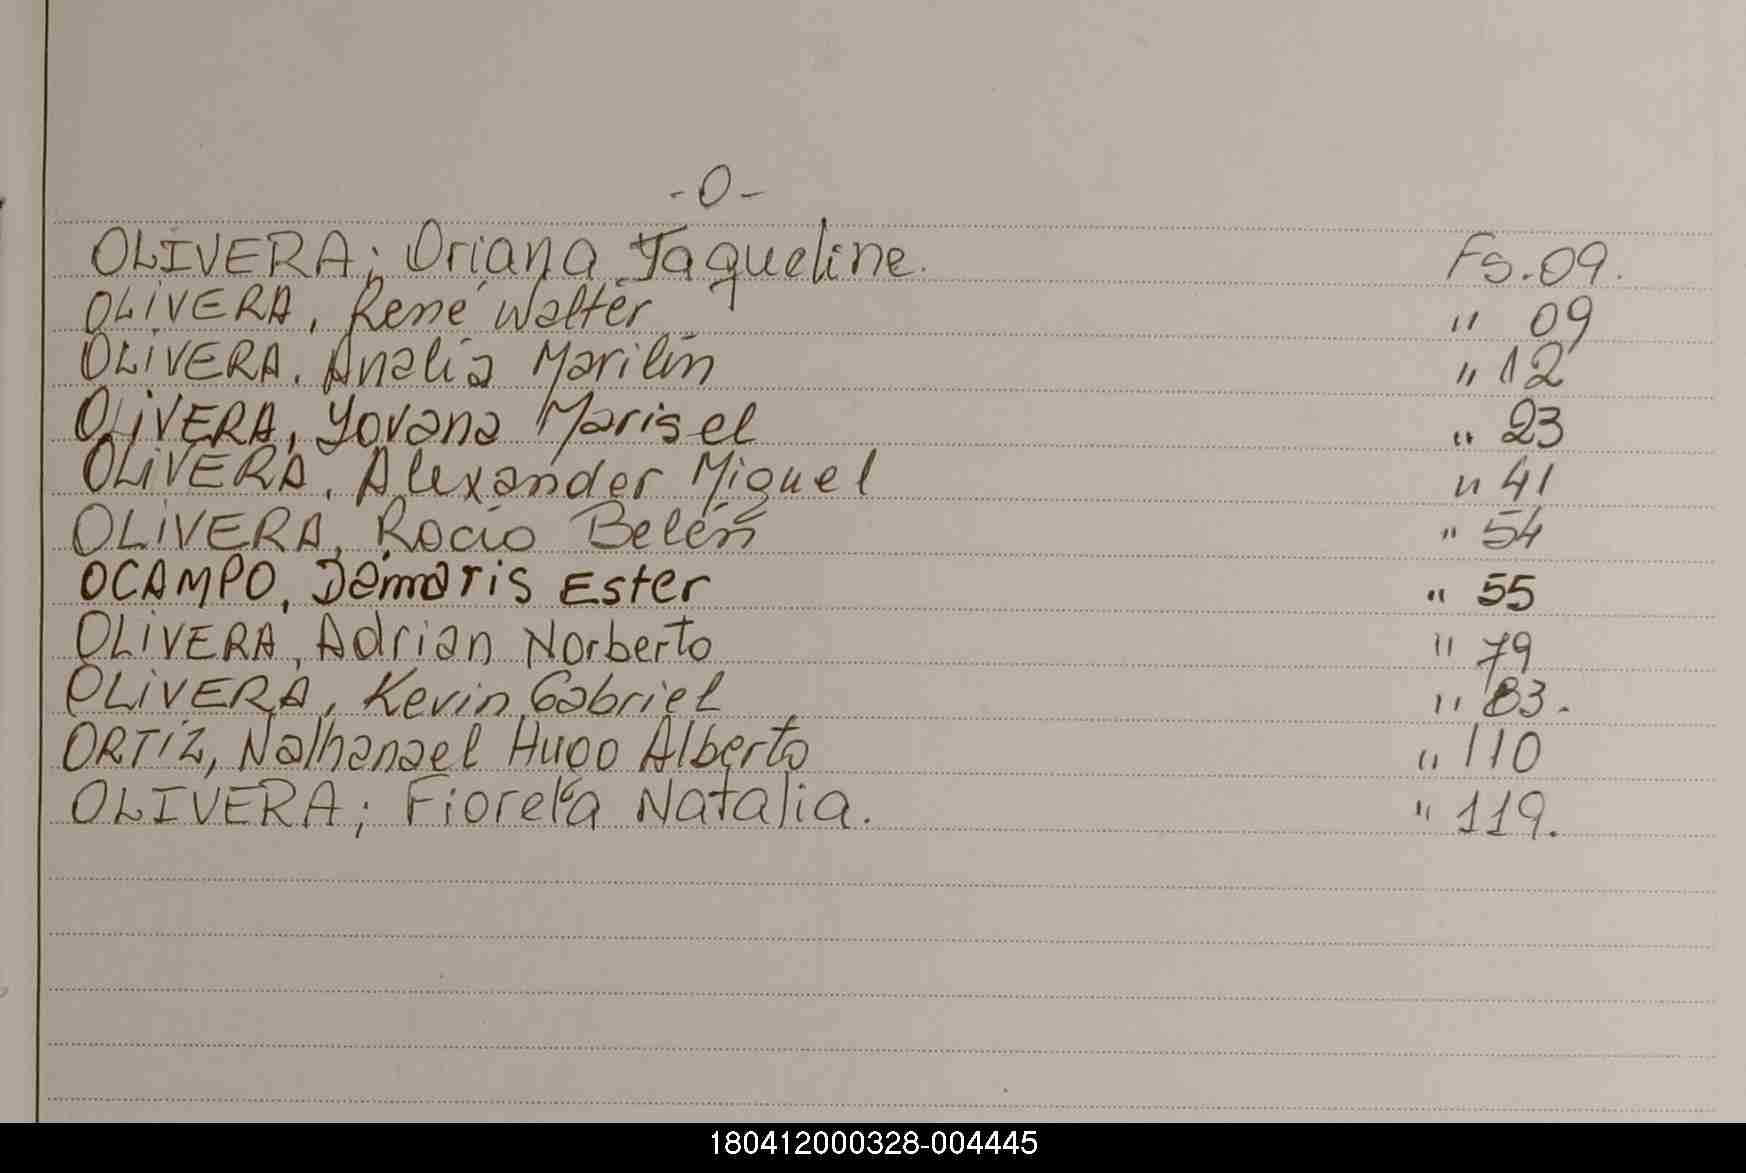 -O-
OLIVERA; Oriana Jaqueline. Fs. 09.
OLIVERA, René Walter " 09
OLIVERA, Analía Marilin " 12
OLIVERA, Yovana Marisel " 23
OLIVERA, Alexander Miguel " 41
OLIVERA, Rocío Belén " 54
OCAMPO, Dámaris Ester " 55
OLIVERA, Adrian Norberto " 79
OLIVERA, Kevin Gabriel " 83.
ORTIZ, Nathanael Hugo Alberto " 110
OLIVERA; Fiorela Natalia. " 119.
180412000328-004445